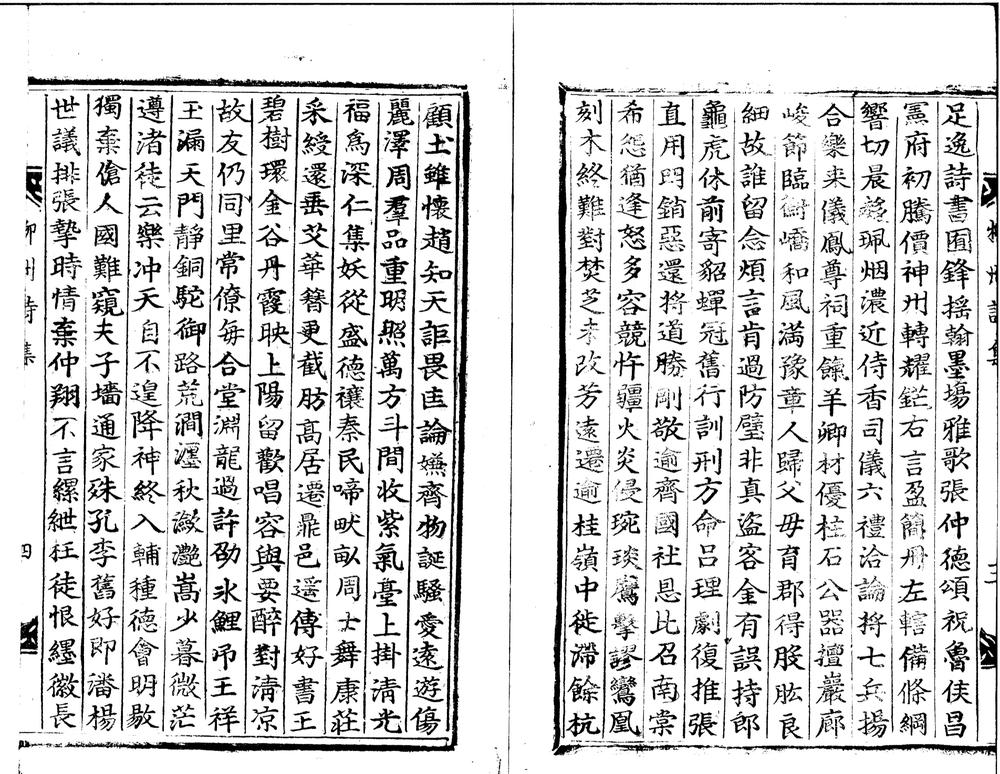 足逸詩書囿鋒搖翰墨場雅歌張仲德頌祝魯侯昌
憲府初騰價神州轉耀鋩右言盈簡冊左轄備條綱
響切晨趨珮烟濃近侍香司儀六禮洽論將七兵揚
合樂来儀鳳尊祠重餼羊卿材優柱石公器擅巖廊
峻節臨衡嶠和風滿豫章人歸父母育郡得股肱良
細故誰留念煩言肯過防璧非真盜客金有誤持郎
龜虎休前寄貂蟬冠舊行訓刑方命呂理劇復推張
直用明銷惡還將道勝剛敬逾齊國社恩比召南棠
希怨猶逢怒多容競忤彊火炎侵琬琰鷹擊謬鸞凰
刻木終難對焚芝未改芳遠遷逾桂嶺中徙滯餘杭
顧土雖懷趙知天詎畏匡論嫌齊物誕騷愛遠遊傷
麗澤周羣品重明照萬方斗間收紫氣臺上掛清光
福為深仁集妖從盛德禳秦民啼畎畝周士舞康莊
采綬還垂艾華簪更截肪高居遷鼎邑遥傳好書王
碧樹環金谷丹霞映上陽留歡唱容與要醉對清凉
故友仍同里常僚每合堂淵龍過許劭冰鯉弔王祥
玉漏天門靜銅駝御路荒澗瀍秋瀲灧嵩少暮微茫
遵渚徒云樂冲天自不遑降神終入輔種德會明敭
獨棄傖人國難窺夫子墻通家殊孔李舊好即潘楊
世議排張摯時情棄仲翔不言縲紲枉徒恨纆徽長
柳州詩集
四